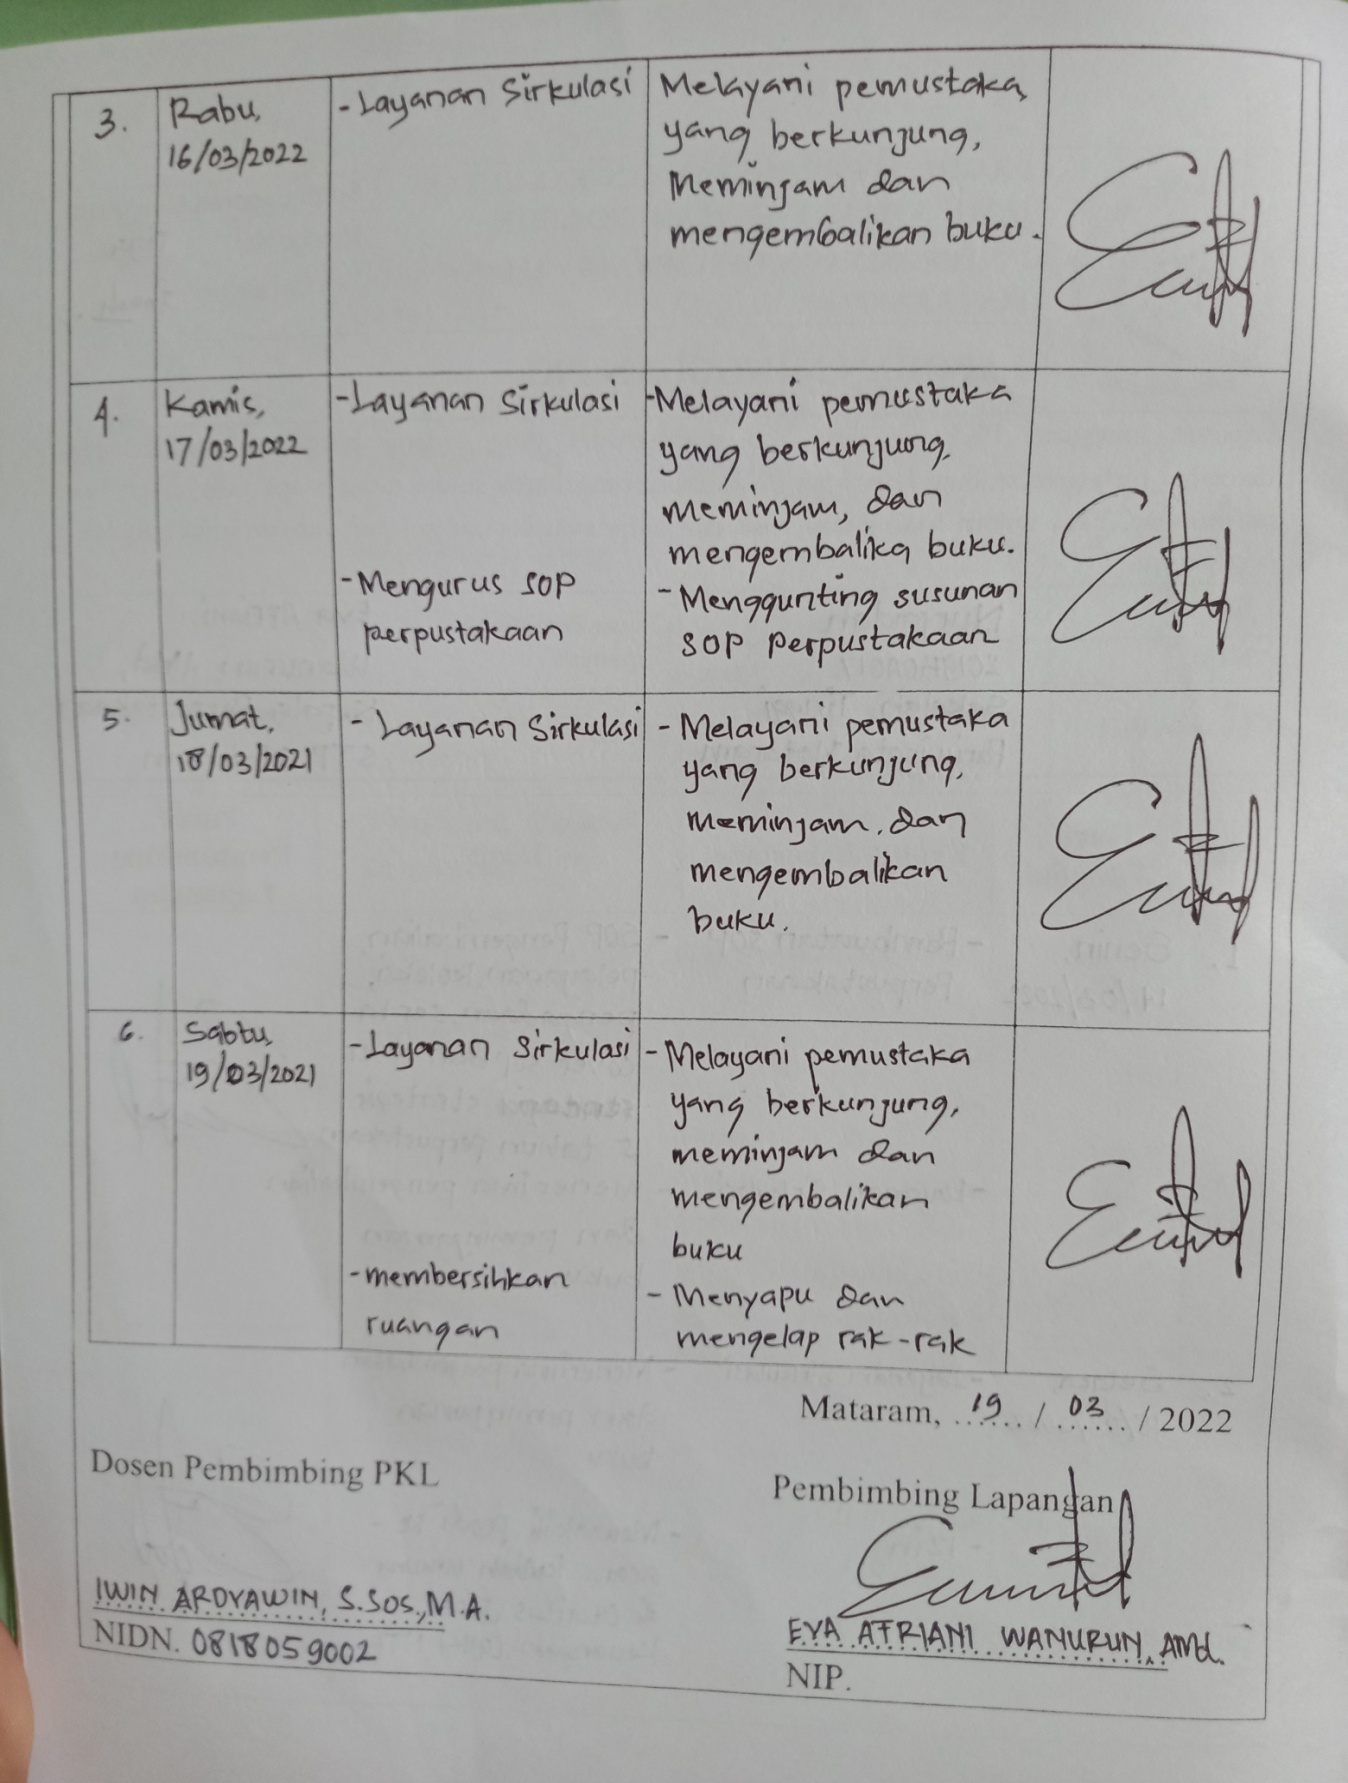 3.
Rabu,
16/03/2022
- Layanan Sirkulasi
Melayani pemustaka
yang berkunjung,
Meminjam dan
mengembalikan buku.
4.
Kamis,
17/03/2022
- Layanan Sirkulasi
- Mengurus SOP
perpustakaan
- Melayani pemustaka
yang berkunjung,
meminjam, dan
mengembalika buku.
- Menggunting susunan
SOP Perpustakaan
5.
Jumat,
18/03/2021
- Layanan Sirkulasi
- Melayani pemustaka
yang berkunjung,
meminjam, dan
mengembalikan
buku.
6.
Sabtu,
19/03/2021
- Layanan Sirkulasi
- membersihkan
ruangan
- Melayani pemustaka
yang berkunjung,
meminjam dan
mengembalikan
buku
- Menyapu dan
mengelap rak-rak
Mataram, 19 / 03 / 2022
Dosen Pembimbing PKL
IWIN ARDYAWIN, S.Sos., M.A.
NIDN. 0818059002
Pembimbing Lapangan
EVA ATRIANI WANURUN, AMd.
NIP.